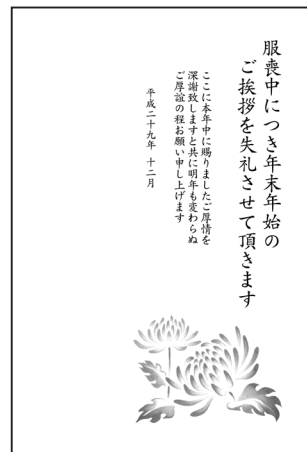 服喪中につき年末年始の
ご挨拶を失礼させて頂きます
ここに本年中に賜りましたご厚情を
深謝致しますと共に明年も変わらぬ
ご厚誼の程お願い申し上げます
平成二十九年 十二月